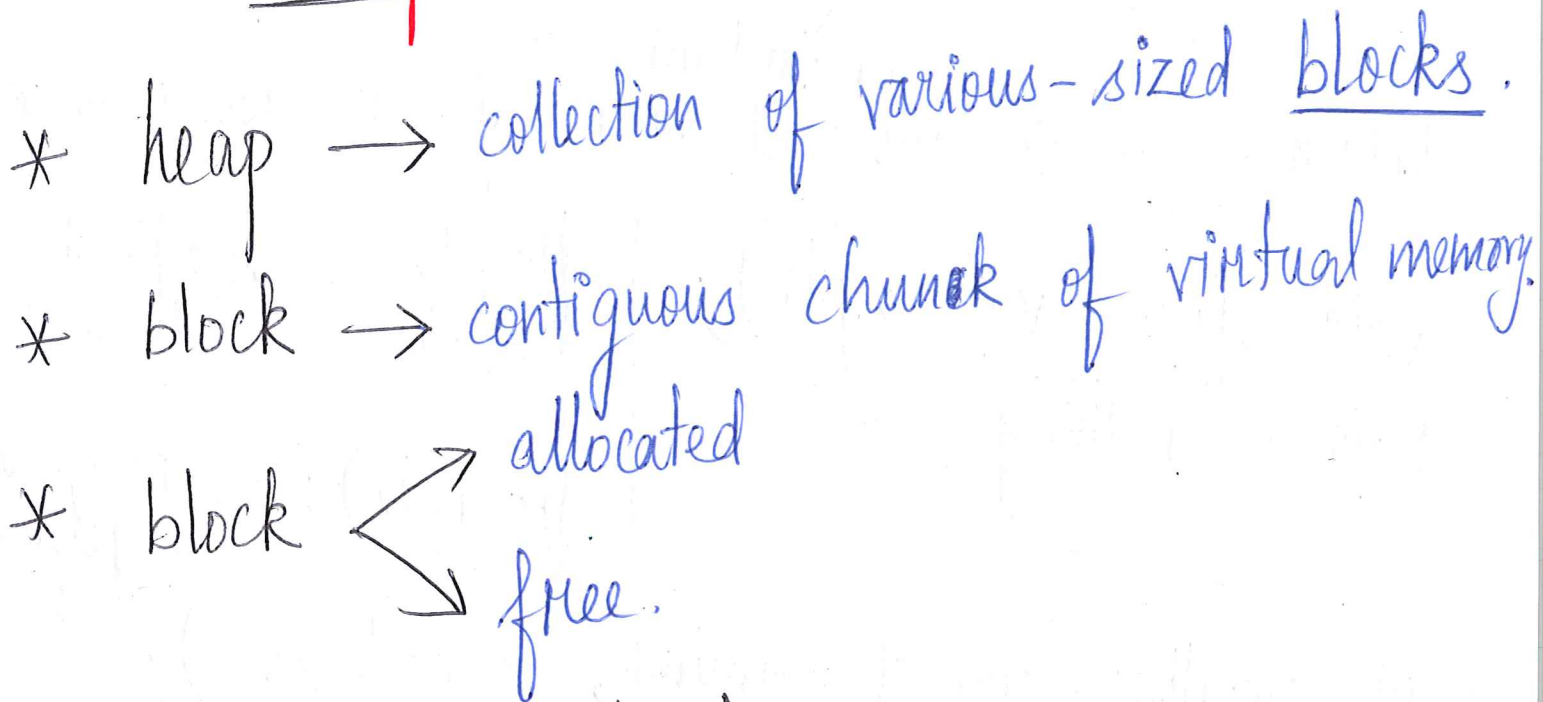 * heap → collection of various-sized blocks.
* block → contiguous chunk of virtual memory.
allocated
* block
free.